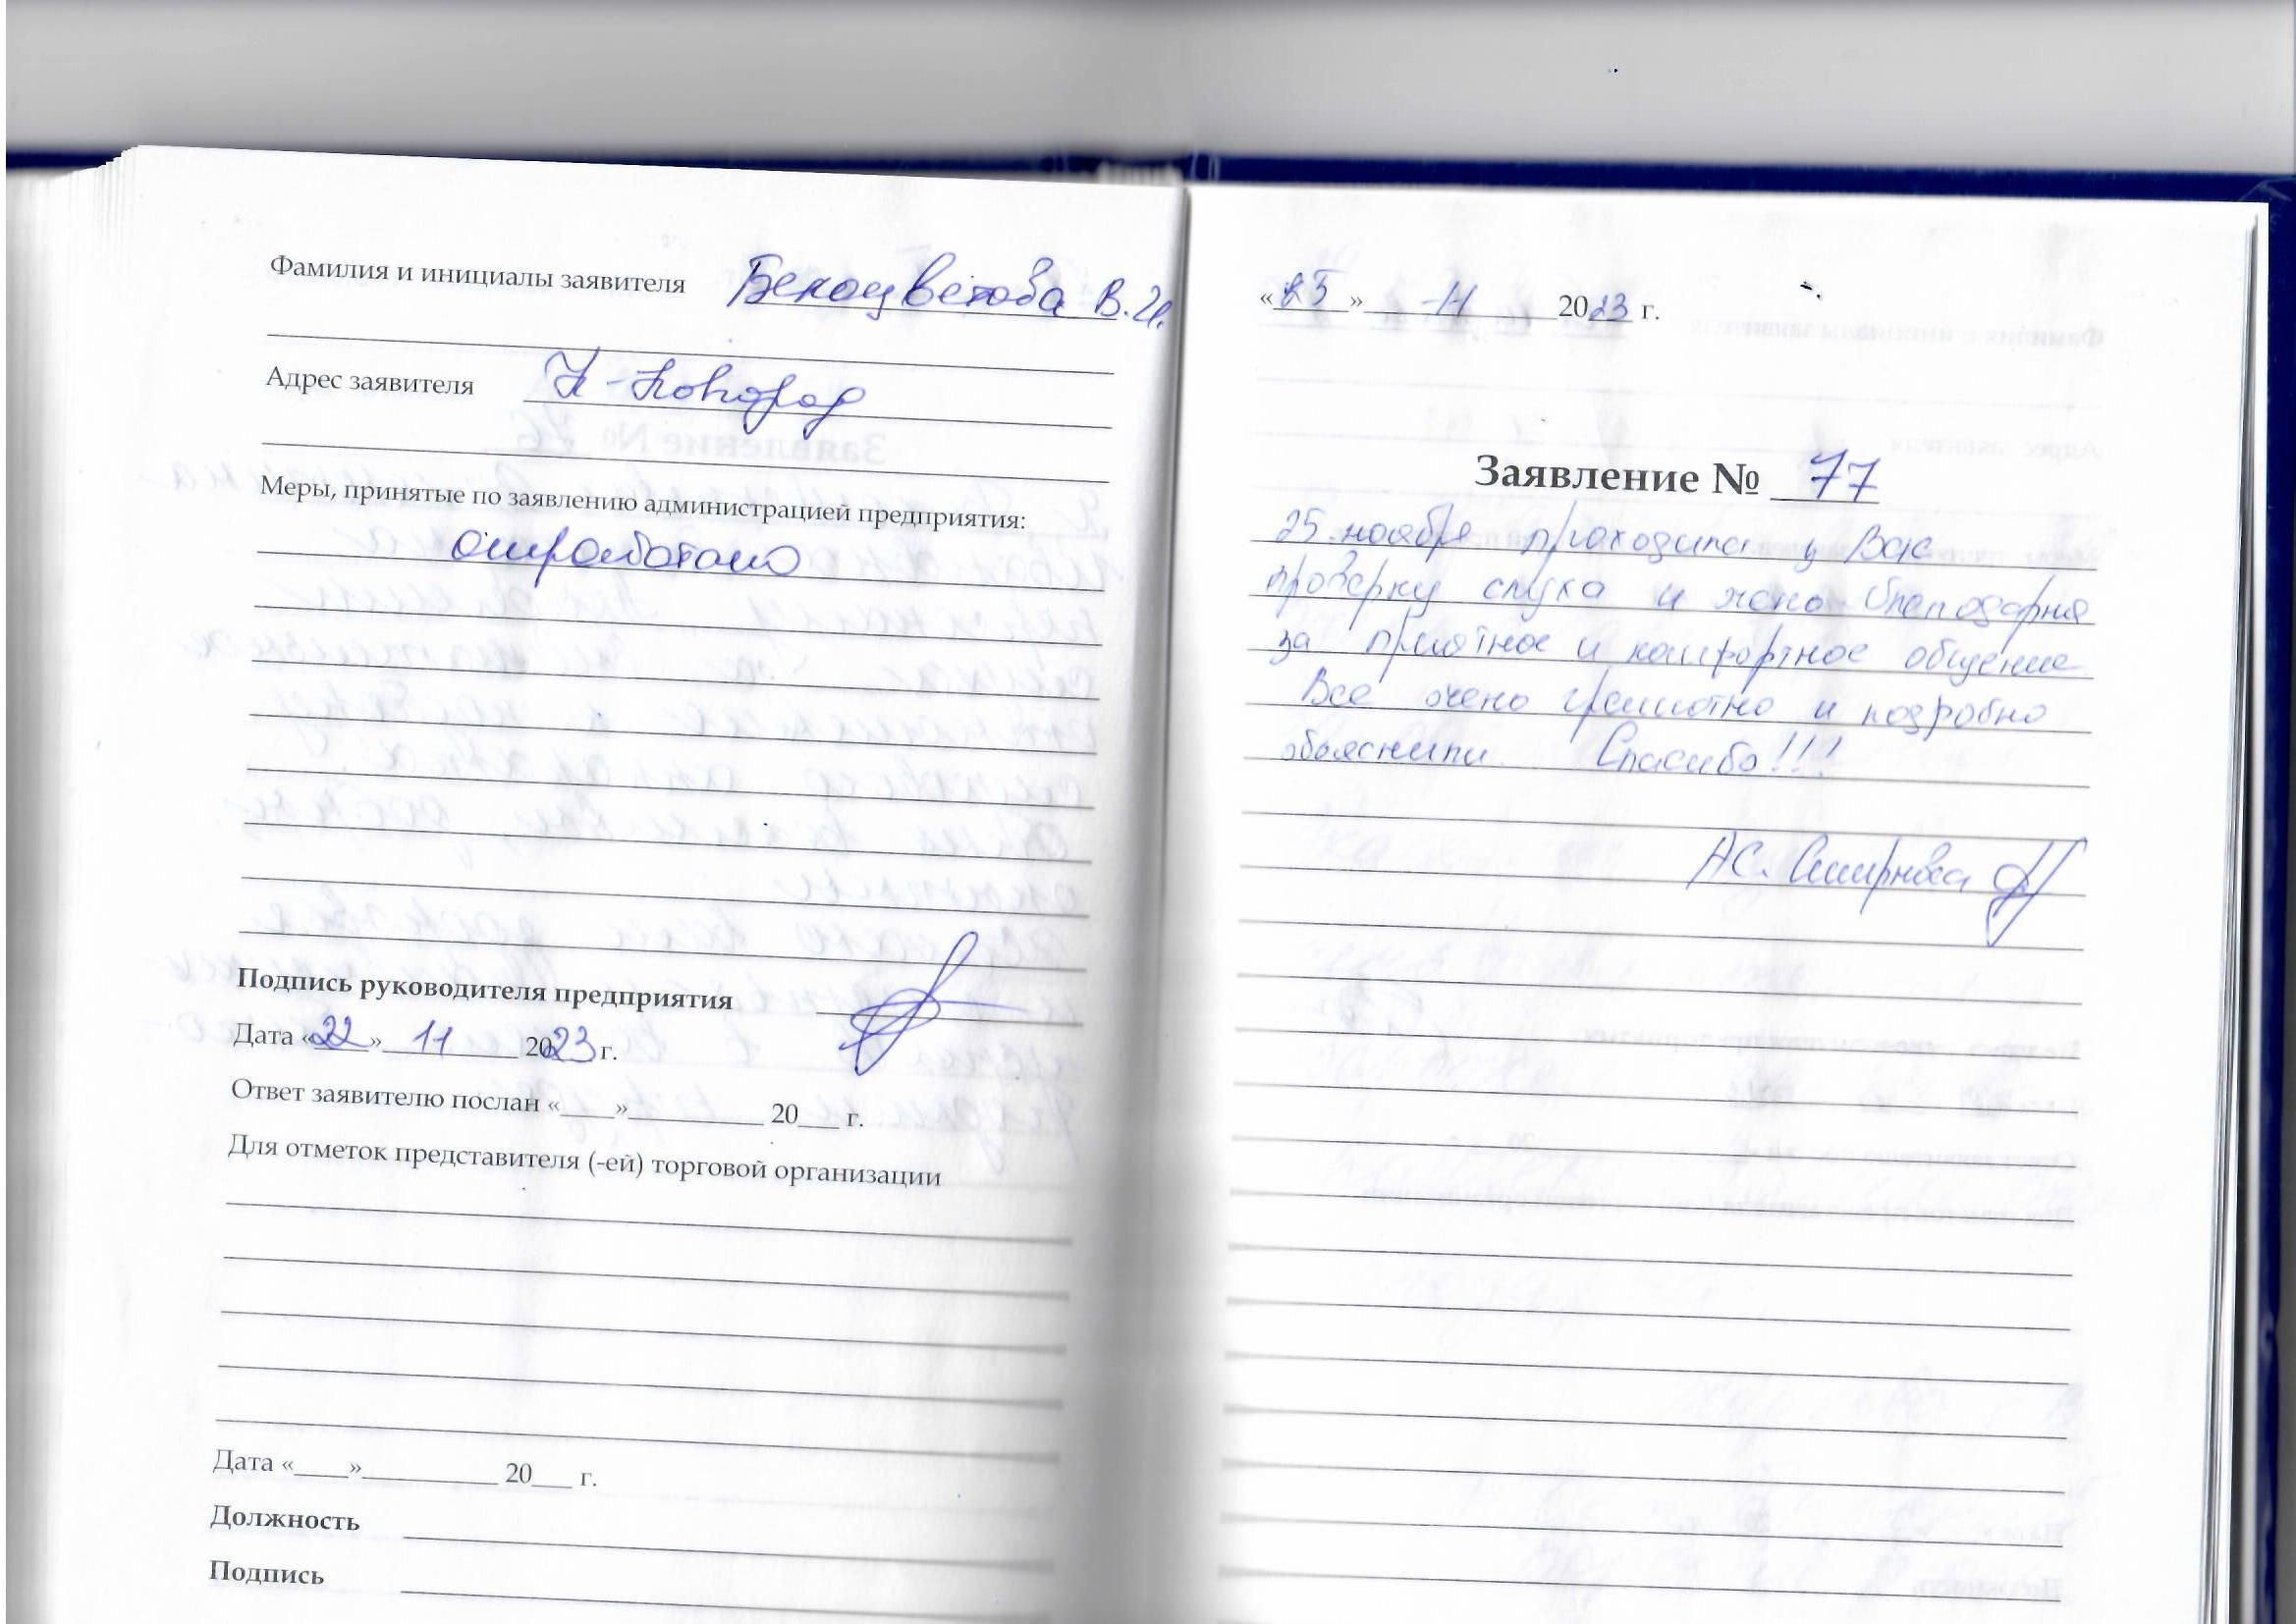 Фамилия и инициалы заявителя Белоцветова В.И.
Адрес заявителя Н-Новгород
Меры, принятые по заявлению администрацией предприятия:
отработано
Подпись руководителя предприятия
Дата «22» 11 2023 г.
Ответ заявителю послан «____»__________ 20___ г.
Для отметок представителя (-ей) торговой организации
Дата «____»__________ 20___ г.
Должность
Подпись
«25» 11 2023 г.
Заявление № 77
25 ноября проходила у Вас
проверку слуха и хочю благодарна
за приятное и комфортное общение
Все очено грамотно и подробно
обьяснили Спасибо!!!
АС. Смирнова